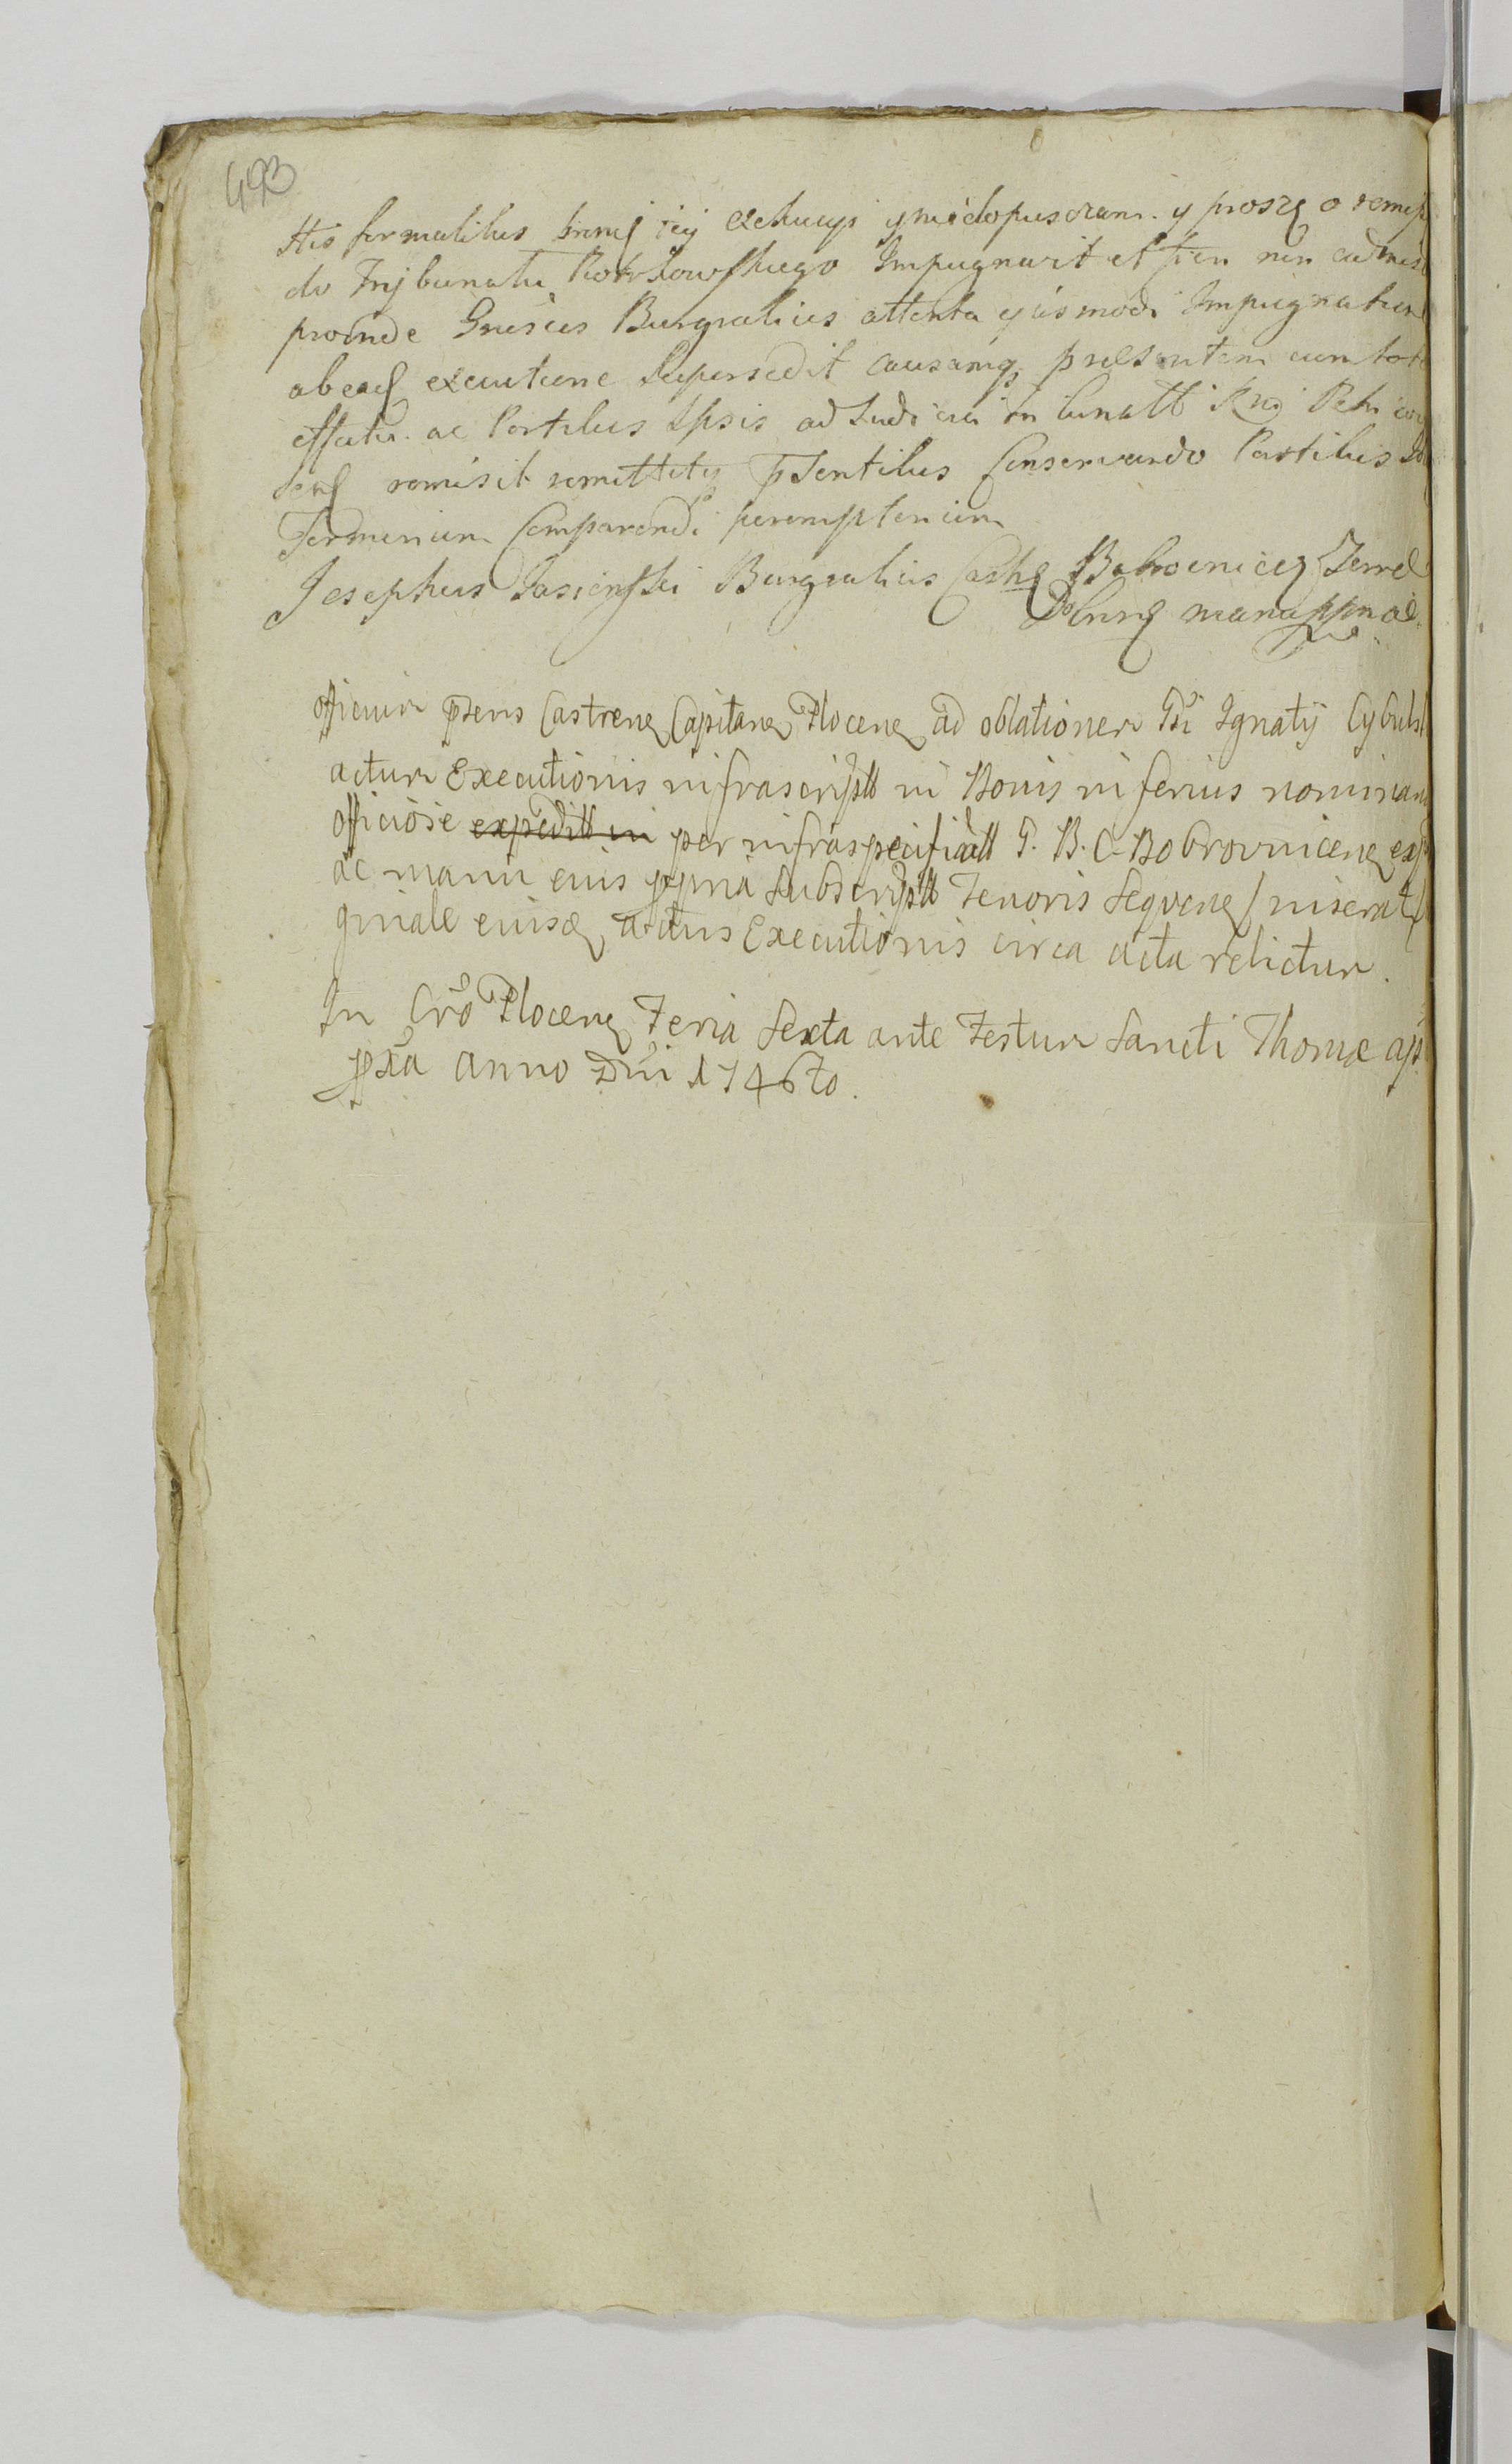 493
His formalibus bronię iey exekucyi y niedopusczam. y proszę o remis
do Trybunału Piotrkowskiego Impugnavit et fieri non admisi
proinde Gnosus Burgrabius attenta ejusmodi Impugnatione
ab eadę executione supersedit causamq presentem cum toto
effectu ac Partibus Ipsis ad Judicia Regni
remisit remittitq pntibus Conservando Partibus
Terminum Comparendi peremptorium
Josephus Jasieński Burgrabius Castrę Bobrovnicę Terrę
Dobrinę manu ppria
officium pñs Castrenę Capitanę Plocenę ad oblationem Gsi Ignatij Cybuls
actum Executionis infrascriptt in Bonis inferius nominan
officiose expeditt in per infraspecificatt G. B. C. Bobrovnicenę exp
ac manu eius ppria subscriptt Tenoris seqvenę inserat
ginale eiusdę actus Executionis circa acta relictum.
In Cro Plocenę Feria Sexta ante Festum Sancti Thomæ ap
pxia anno Dni 1746to.